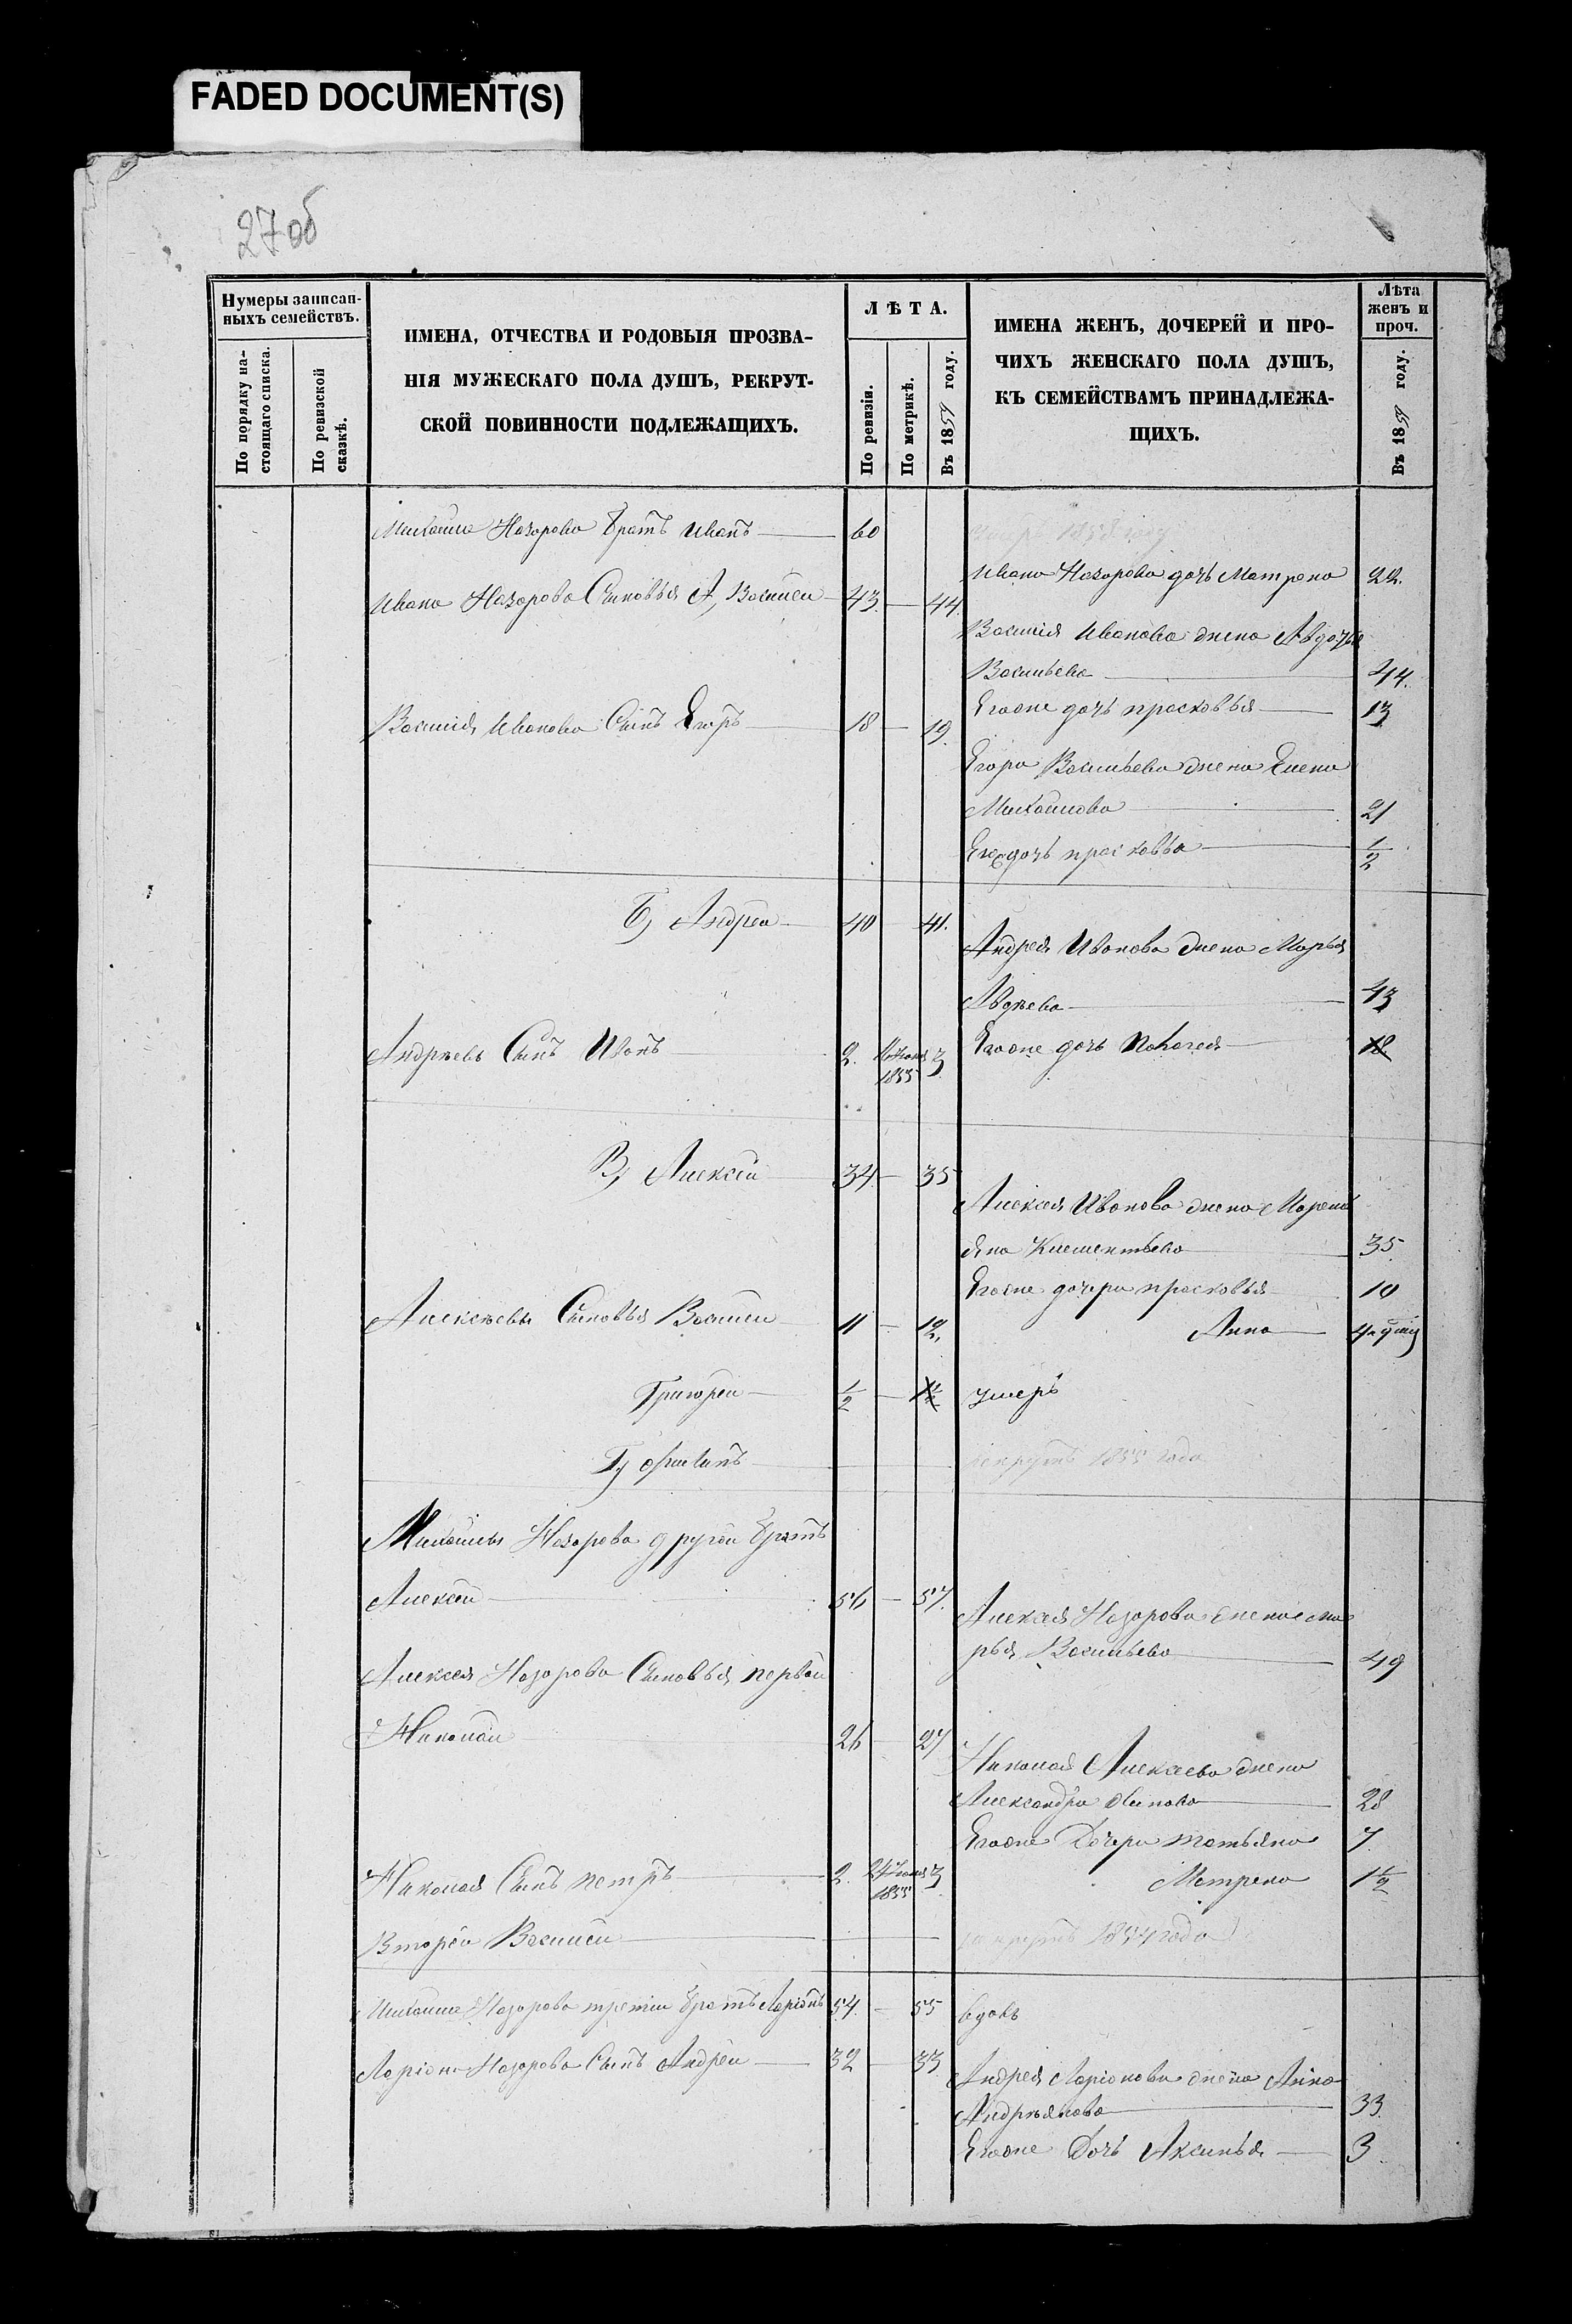 FADED DOCUMENT(S)
27 об
Нумеры записан-
ныхъ семействъ.
По порядку на-
стоящаго списка.
По ревизской
сказкѣ.
ИМЕНА, ОТЧЕСТВА И РОДОВЫЯ ПРОЗВА-
НІЯ МУЖЕСКАГО ПОЛА ДУШЪ, РЕКРУТ-
СКОЙ ПОВИННОСТИ ПОДЛЕЖАЩИХЪ.
ЛѢТА.
По ревизіи.
По метрикѣ.
Въ 18 году.
ИМЕНА ЖЕНЪ, ДОЧЕРЕЙ И ПРО-
ЧИХЪ ЖЕНСКАГО ПОЛА ДУШЪ,
КЪ СЕМЕЙСТВАМЪ ПРИНАДЛЕЖА-
ЩИХЪ.
Лѣта
женъ и
проч.
Въ 18 году.
Михайла Назарова братъ Иванъ 60
Ивана Назарова дочь Матрена 22.
Ивана Назарова Сыновья А, Василеи 43 44.
Василія Иванова жена Авдотья
Васильева 44.
Егоже дочь прасковья 13
Василія Иванова Сынъ Егоръ 18 19.
Егора Васильева жена Елена
Михайлова 21
Его дочь прасковья 1/2
Б, Андреи 40 41.
Андрея Иванова жена Марья
Авдѣева 43
Андрѣевъ Сынъ Иванъ 2. 1855 3
Егоже дочь Пелагея 18
В, Алексѣи 34 35
Алексея Иванова жена Маремь
яна Клементьева 35.
Егоже дочери прасковья 10
Алексѣевы Сыновья Василеи 11 12,
Анна
Григореи 1/2 1 1/2 умеръ
Г, Филипъ рекрутъ 1855 года
Михайлы Назарова другой братъ
Алексѣи 56 57.
Алексея Назарова жена Ма
рья Васильева 49
Алексея Назарова Сыновья первои
Николаи 26 27
Николая Алексеева жена
Александра 28
Егоже Дочери татьяна 7.
Николая Сынъ петръ 2. 1855 3
Матрена 1 1/2
Второи Василеи рекрутъ 1854 года
Михайла Назарова третіи братъ Ларіонъ 54. 55 вдовъ
Ларіона Назарова Сынъ Андреи 32 33
Андрея Ларіонова жена Анна
Андреянова 33.
Егоже Дочь Аксинья 3.